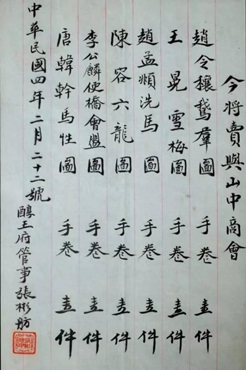 今將賣與山中商會
趙令穰鵞羣圖 手卷 壹件
王冕雪梅圖 手卷 壹件
趙孟頫洗馬圖 手卷 壹件
陳容六龍圖 手卷 壹件
李公麟便橋會盟圖 手卷 壹件
唐韓幹馬性圖 手卷 壹件
中華民國四年二月二十二號
醇王府管事張彬舫